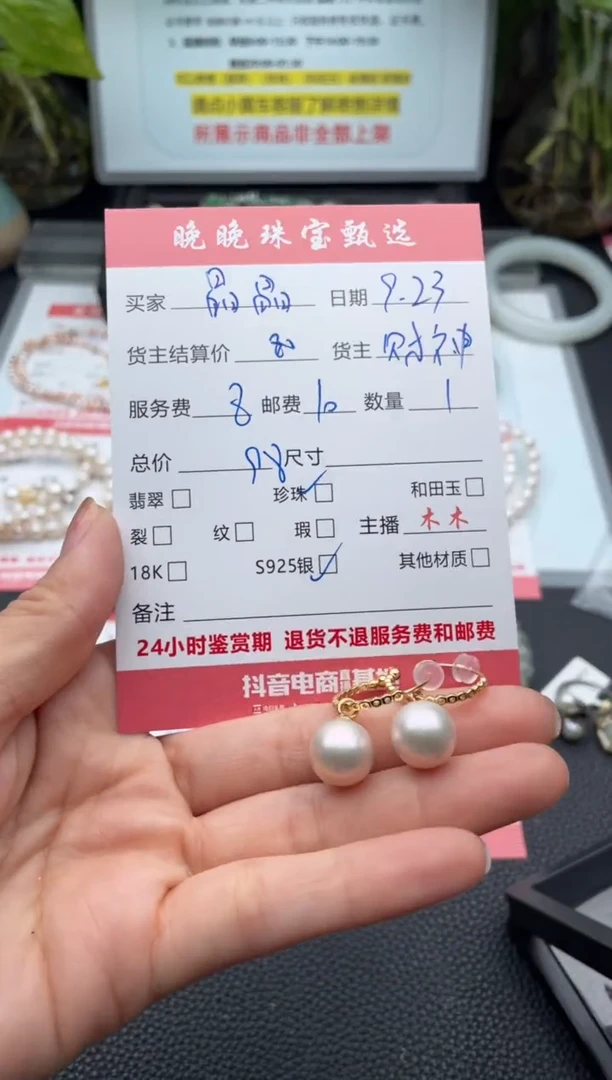 请点小黄车客服了解售后详情
所展示商品非全部上架
晚晚珠宝甄选
买家 晶晶 日期 9.23
货主结算价 80 货主 财神
服务费 8 邮费 10 数量 1
总价 98 尺寸
翡翠 珍珠 和田玉
裂 纹 瑕 主播 木木
18K S925银 其他材质
备注
24小时鉴赏期 退货不退服务费和邮费
抖音电商